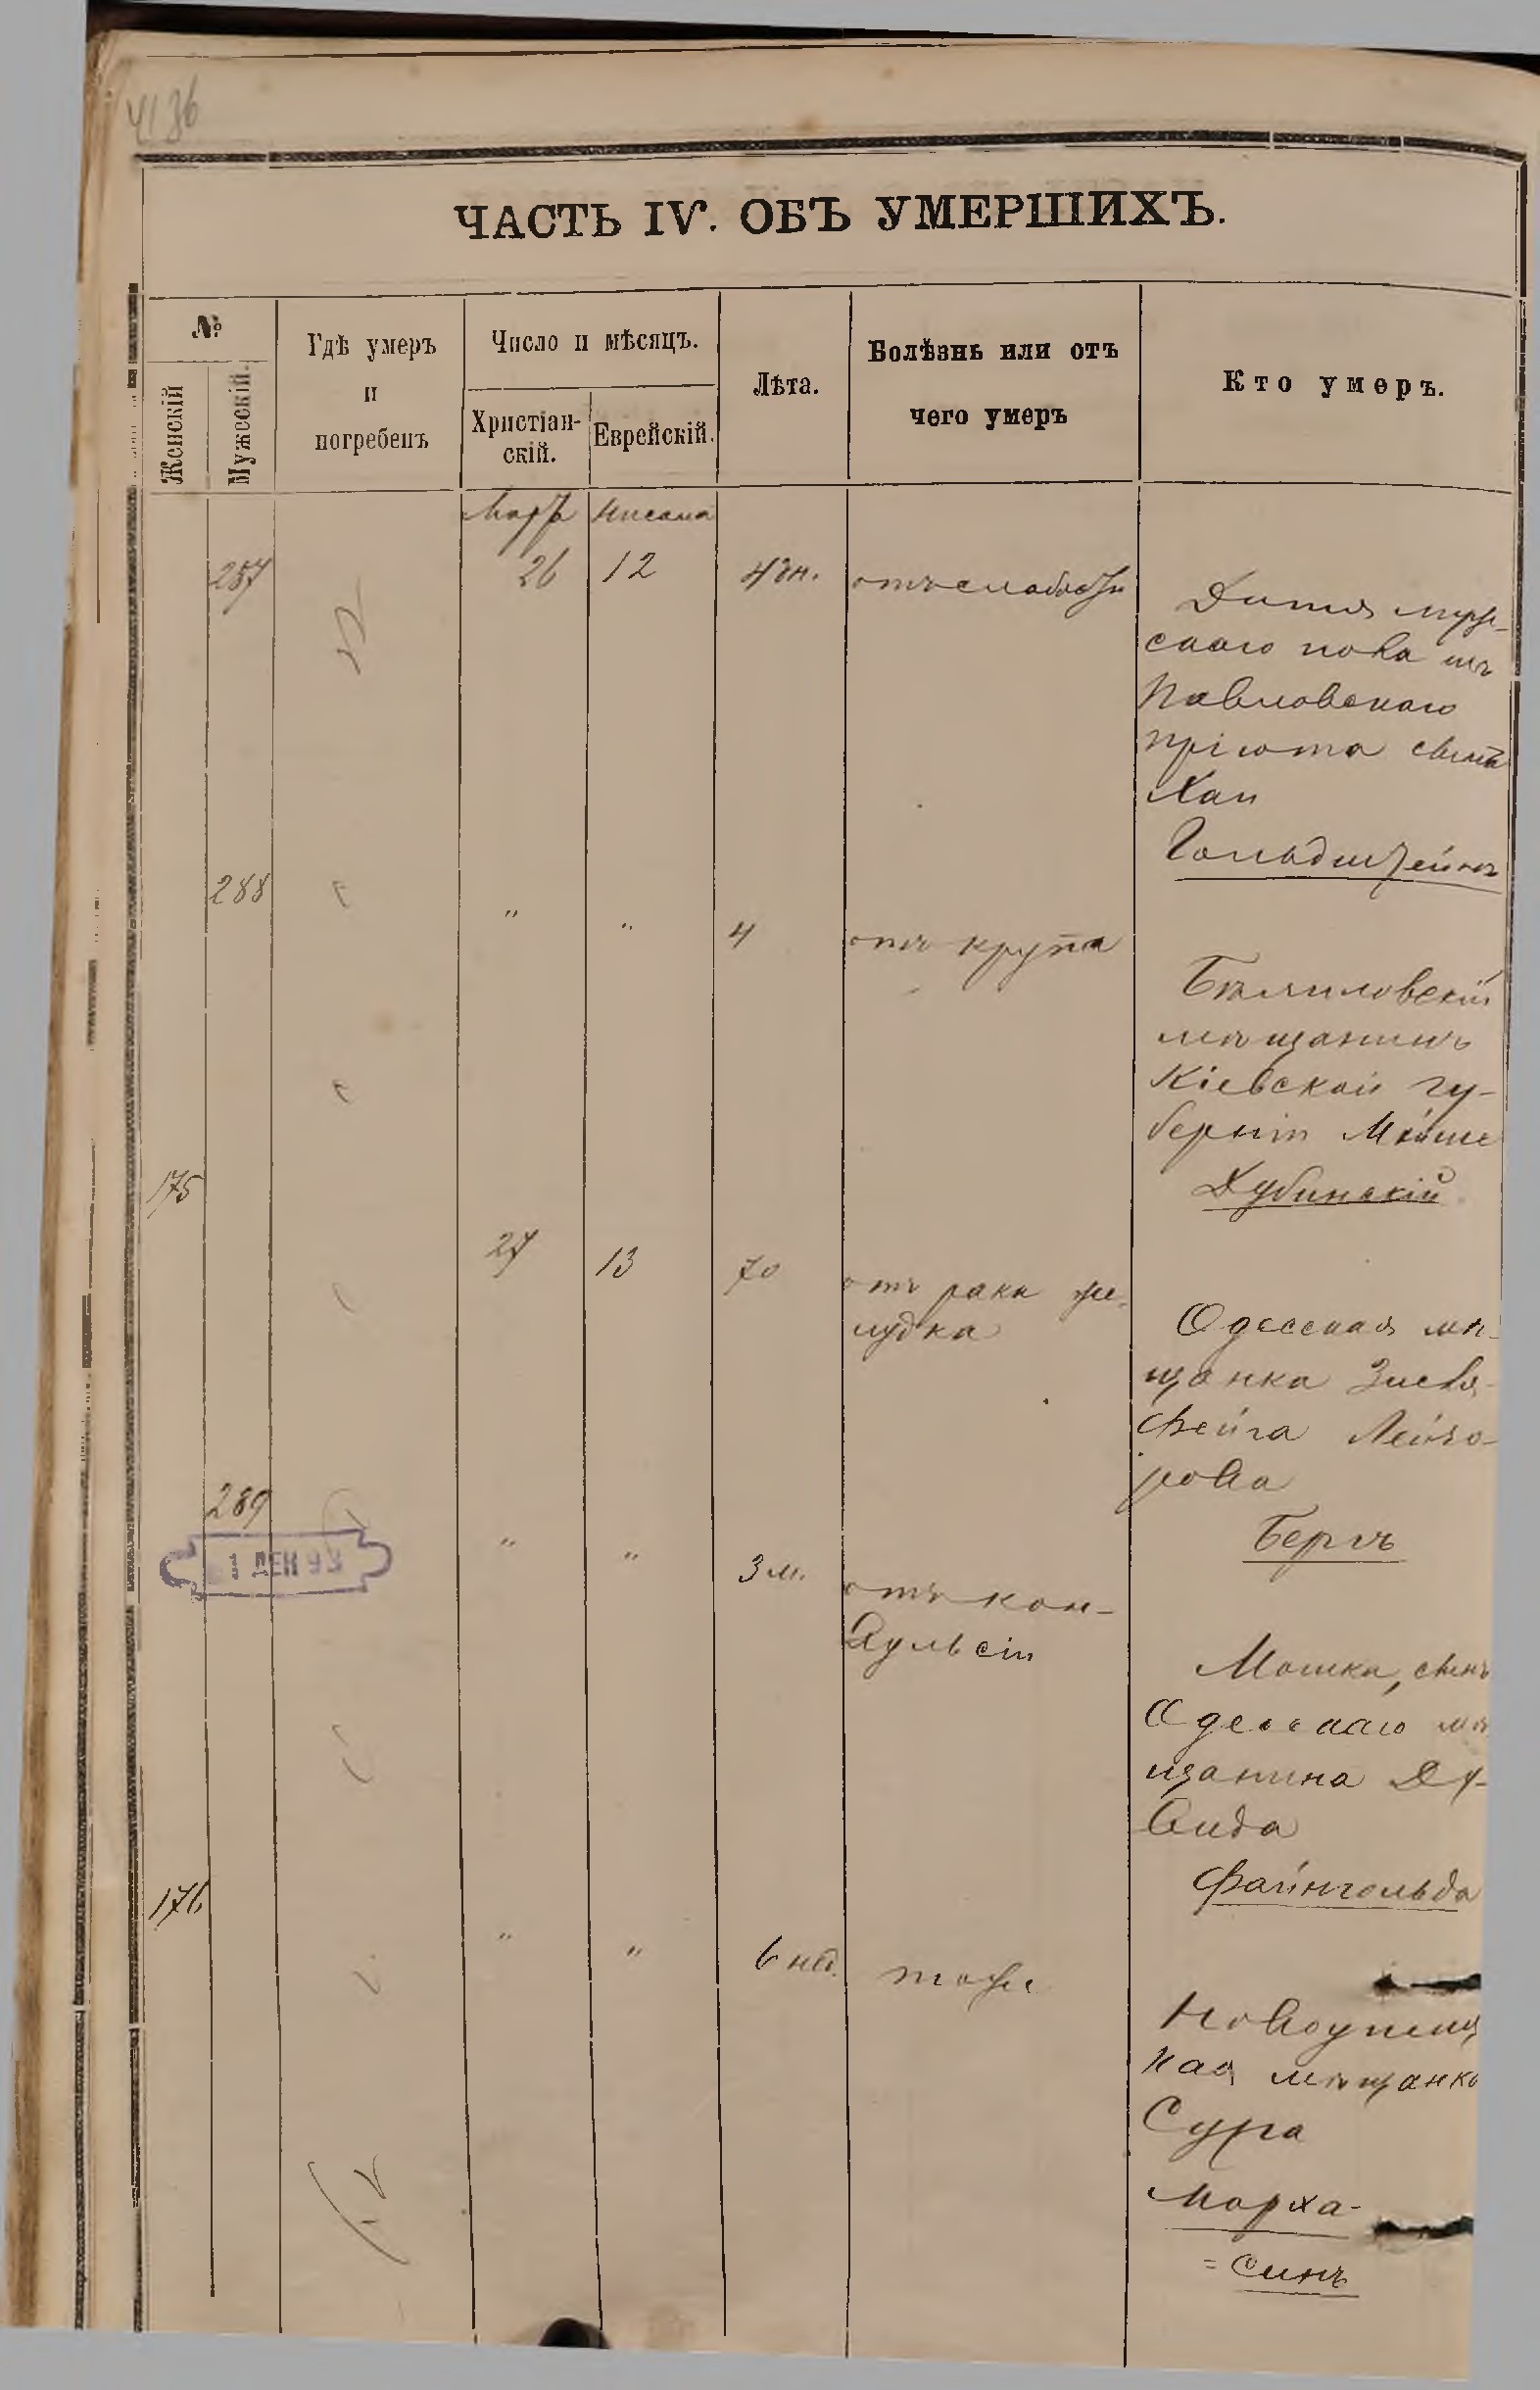 4136
ЧАСТЬ IV. ОБЪ УМЕРШИХЪ.
№
Женскій
Мужескій.
Гдѣ умеръ
и
погребенъ
Число и мѣсяцъ.
Христіан-
скій.
Еврейскій.
Лѣта.
Болѣзнь или отъ
чего умеръ
Кто умеръ.
Март Нисана
287 26 12 4 дн. отъ слабости
Дитя муж-
скаго пола изъ
Павловскаго
пріюта сынъ
Хаи
Гольдштейнъ
288 " " 4 отъ крупа
Бѣлиловскій
мѣщанинъ
Кіевской гу-
берніи Мойше
Дубинскій
175 27 13 70 отъ рака же-
лудка
Одесская мѣ-
щанка Зисля-
Фейга Лейзо-
рова
Берчъ
289 " " 3 м. отъ кон-
вульсіи
1 ДЕК 93
Мошка, сынъ
Одесскаго мѣ-
щанина Ду-
вида
Файнгольда
176 " " 6 нед. тоже
Новоушиц
кая мѣщанка
Сура
Марха-
=синъ